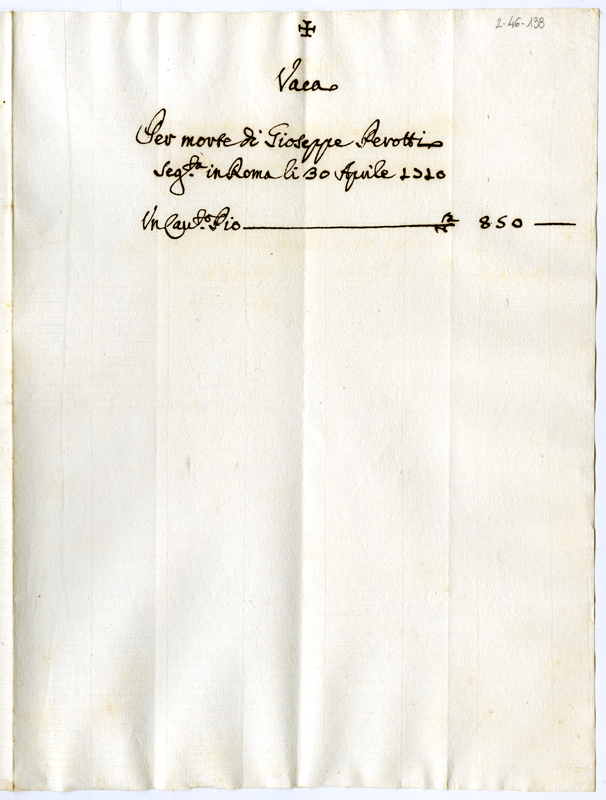 2-46-138
✠
Vaca
Per morte di Gioseppe Perotti
seg.ta in Roma li 30 Aprile 1710
Un Cau.to Pio 850